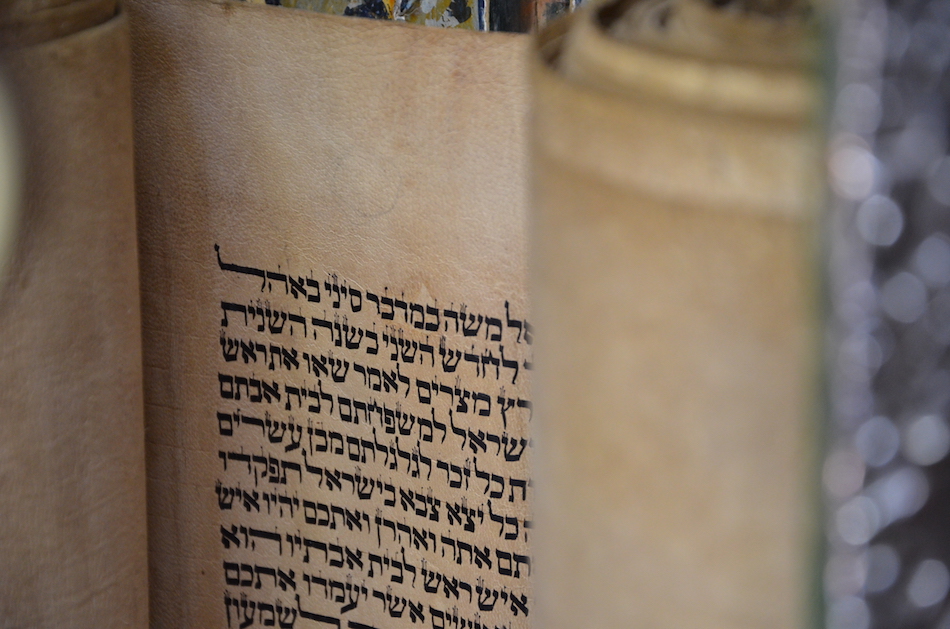 אל משה במדבר סיני באהל
לחדש השני בשנה השנית
רץ מצרים לאמר שאו את ראש
שראל למשפחתם לבית אבתם
ת כל זכר לגלגלתם מבן עשרים
ה כל יצא צבא בישראל תפקדו
תם אתה ואהרן ואתכם יהיו איש
איש ראש לבית אבתיו הוא
אנשים אשר יעמדו אתכם
לשמעון